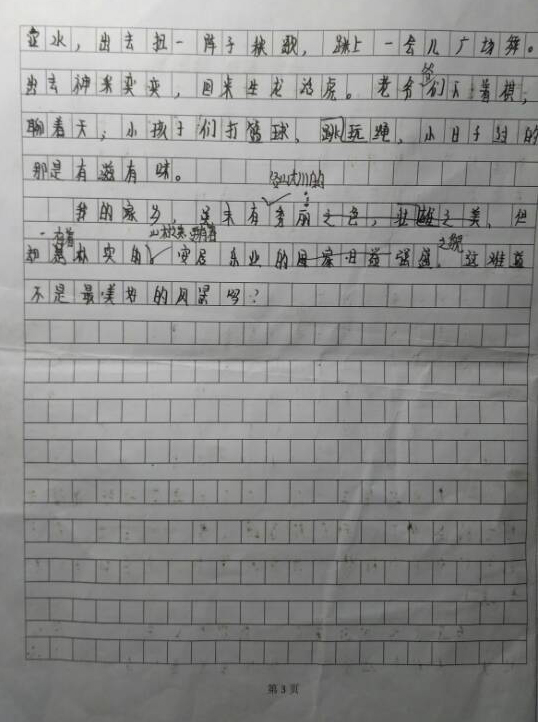 壶水，出去扭一阵子秧歌，跳上一会儿广场舞。
出去神采奕奕，回来生龙活虎。老爷爷们下着棋，
聊着天；小孩子们打篮球、跳玩绳，小日子过的
那是有滋有味。
名山大川的
我的家乡，虽未有秀丽之色，壮雄之美，但
有着
却是朴实的 安居乐业的 强盛，这难道
之貌
不是最美好的风景吗？
第3页